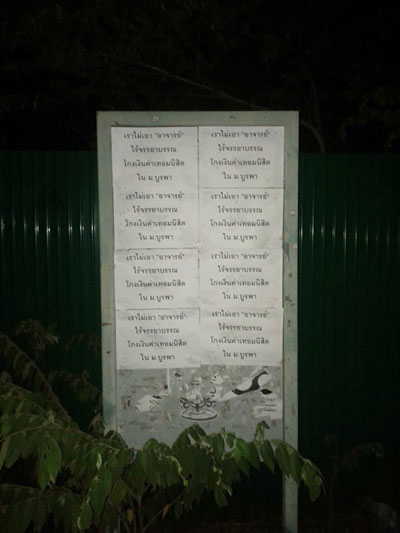 เราไม่เอา "อาจารย์"
ไร้จรรยาบรรณ
โกงเงินค่าเทอมนิสิต
ใน ม.บูรพา
เราไม่เอา "อาจารย์"
ไร้จรรยาบรรณ
โกงเงินค่าเทอมนิสิต
ใน ม.บูรพา
เราไม่เอา "อาจารย์"
ไร้จรรยาบรรณ
โกงเงินค่าเทอมนิสิต
ใน ม.บูรพา
เราไม่เอา "อาจารย์"
ไร้จรรยาบรรณ
โกงเงินค่าเทอมนิสิต
ใน ม.บูรพา
เราไม่เอา "อาจารย์"
ไร้จรรยาบรรณ
โกงเงินค่าเทอมนิสิต
ใน ม.บูรพา
เราไม่เอา "อาจารย์"
ไร้จรรยาบรรณ
โกงเงินค่าเทอมนิสิต
ใน ม.บูรพา
เราไม่เอา "อาจารย์"
ไร้จรรยาบรรณ
โกงเงินค่าเทอมนิสิต
ใน ม.บูรพา
เราไม่เอา "อาจารย์"
ไร้จรรยาบรรณ
โกงเงินค่าเทอมนิสิต
ใน ม.บูรพา